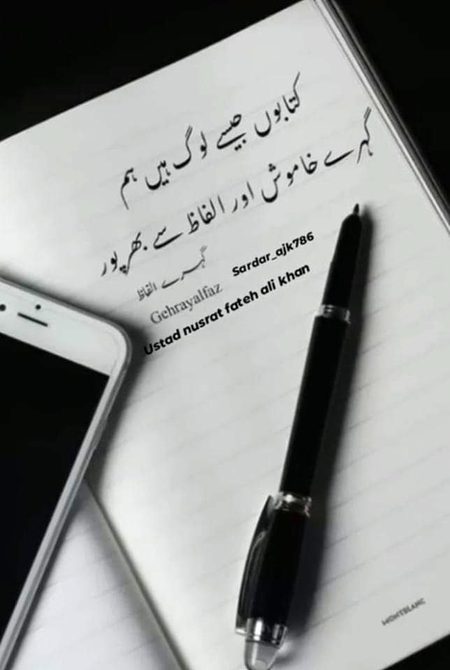 کتابوں جیسے لوگ ہیں ہم
گہرے خاموش اور الفاظ سے بھرپور
گہرے الفاظ
Gehrayalfaz
Sardar_ajk786
Ustad nusrat fateh ali khan
MONTBLANC